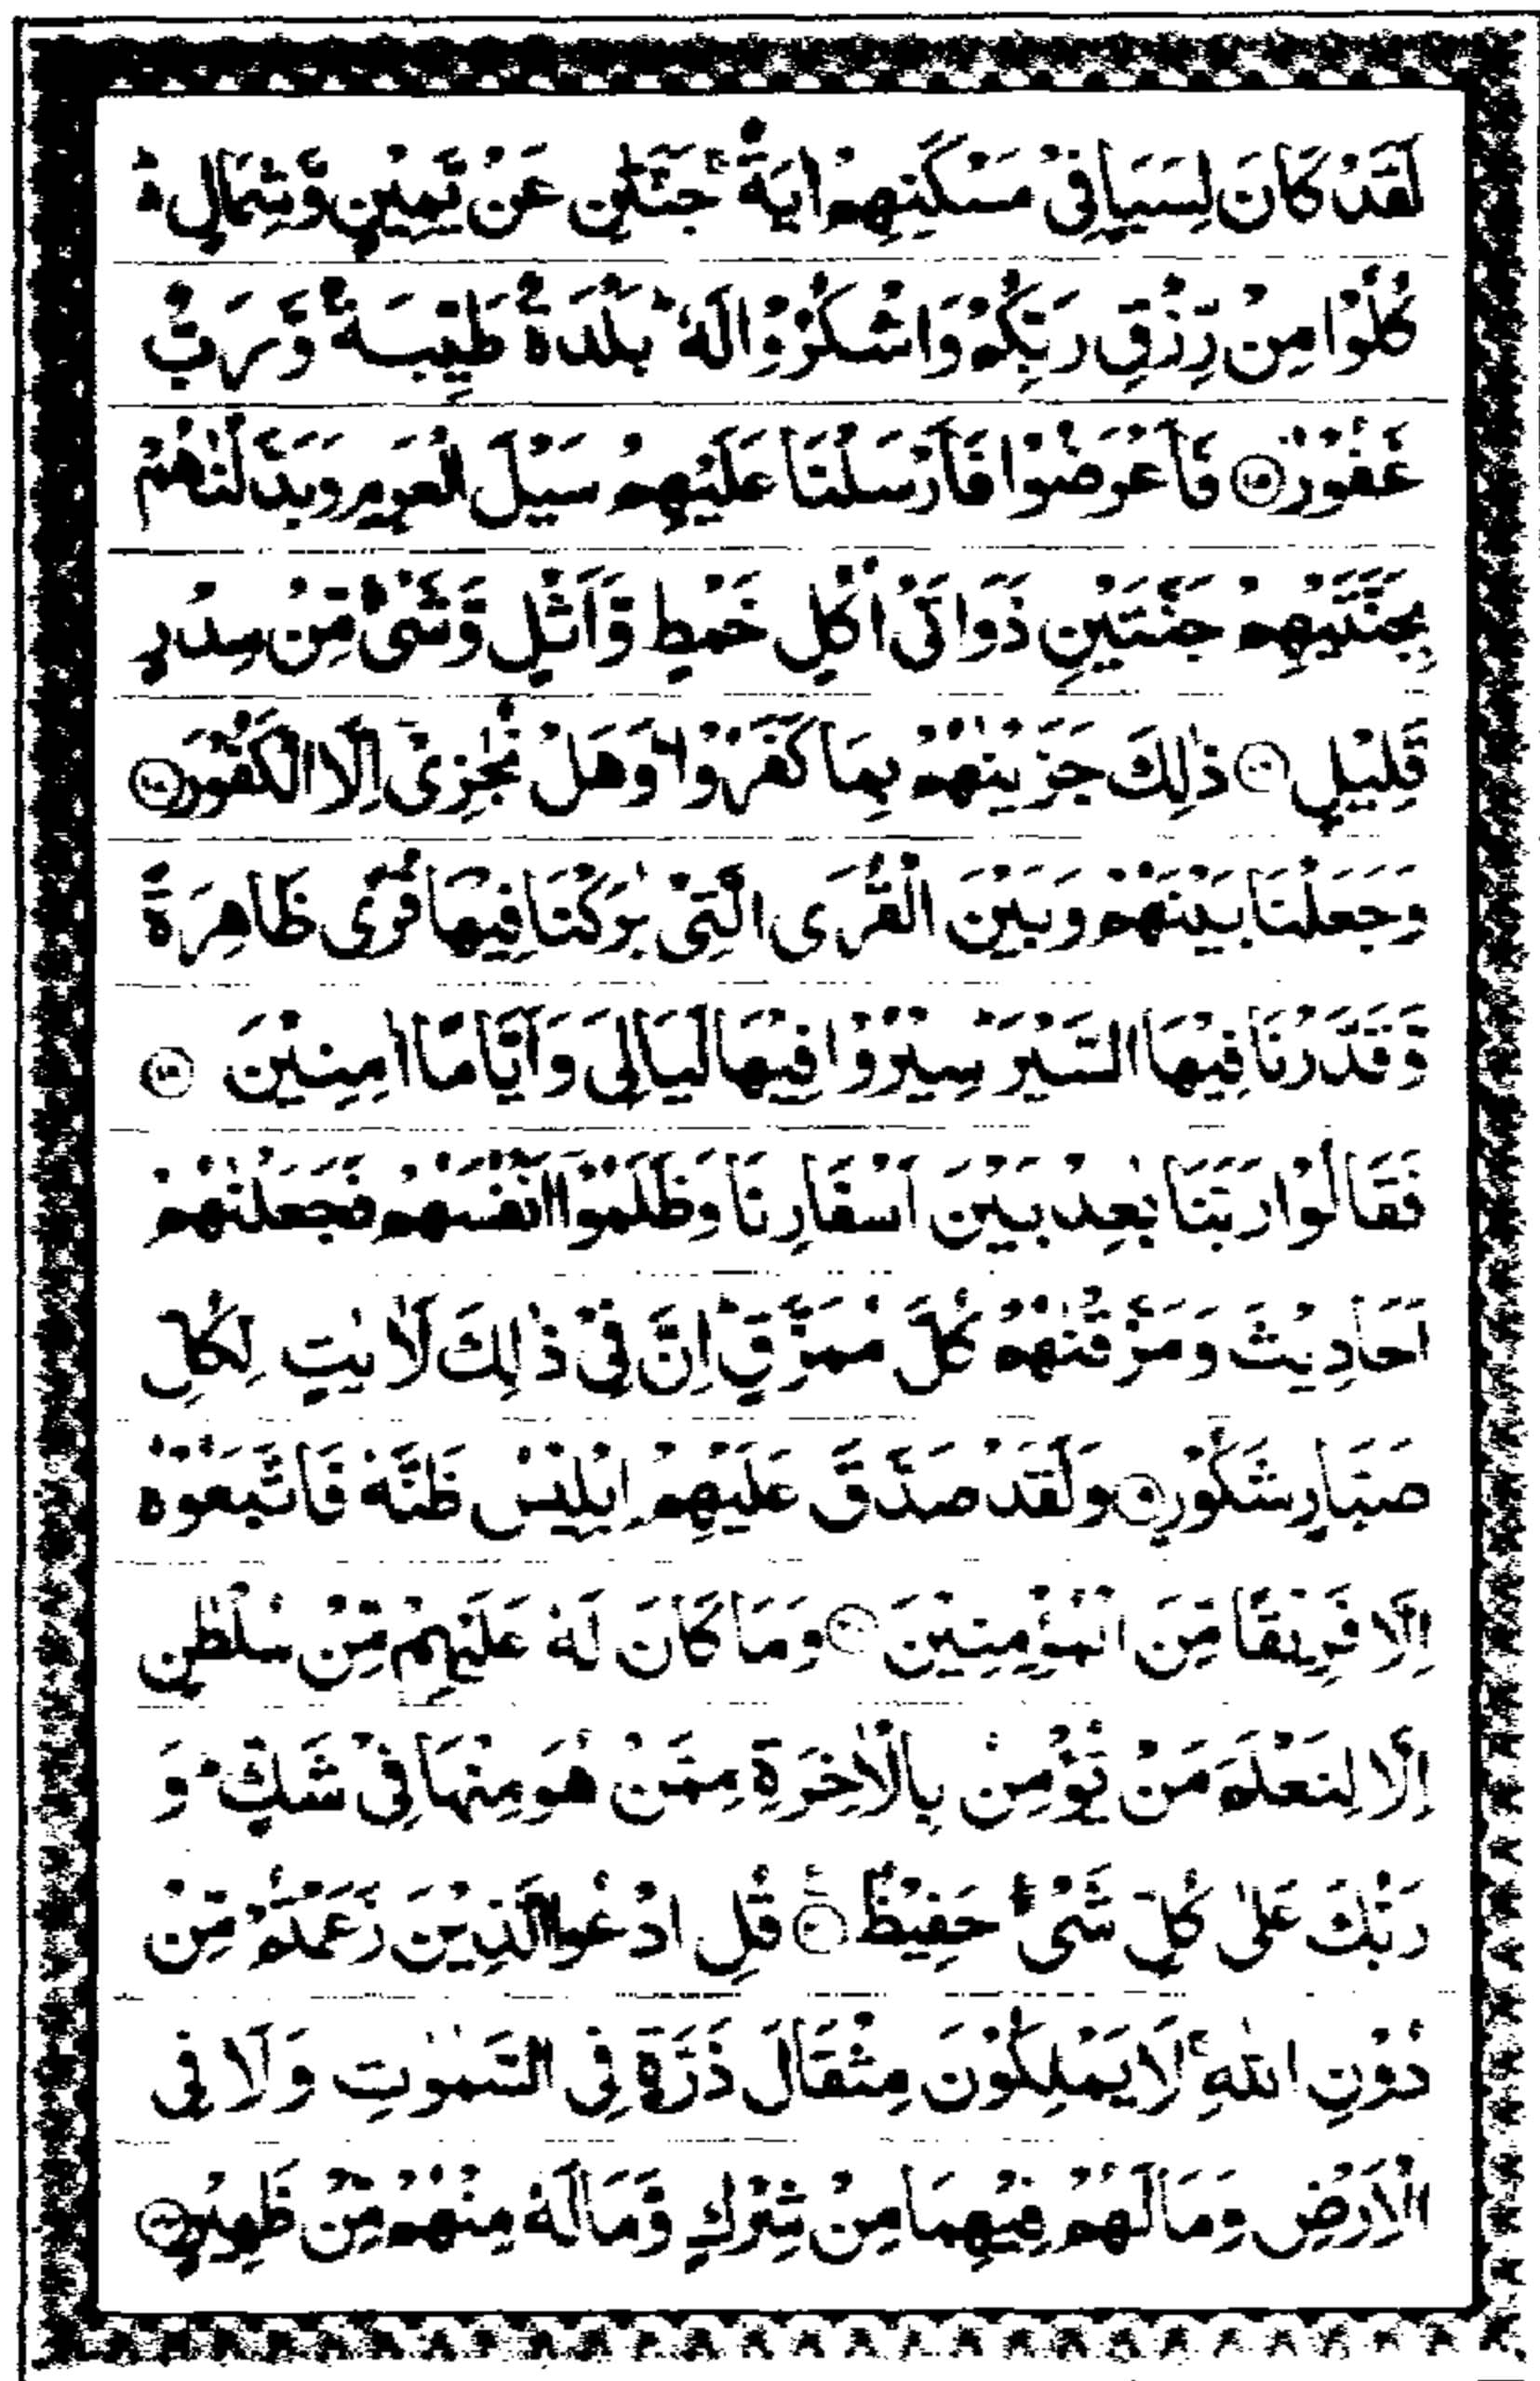 لَقَدْ كَانَ لِسَبَإٍ فِيْ مَسْكَنِهِمْ اٰيَةٌ ۚ جَنَّتٰنِ عَنْ يَّمِيْنٍ وَّشِمَالٍ ؕ
كُلُوْا مِنْ رِّزْقِ رَبِّكُمْ وَاشْكُرُوْا لَهٗ ؕ بَلْدَةٌ طَيِّبَةٌ وَّرَبٌّ
غَفُوْرٌ ۝۱۵ فَاَعْرَضُوْا فَاَرْسَلْنَا عَلَيْهِمْ سَيْلَ الْعَرِمِ وَبَدَّلْنٰهُمْ
بِجَنَّتَيْهِمْ جَنَّتَيْنِ ذَوَاتَيْ اُكُلٍ خَمْطٍ وَّاَثْلٍ وَّشَيْءٍ مِّنْ سِدْرٍ
قَلِيْلٍ ۝۱۶ ذٰلِكَ جَزَيْنٰهُمْ بِمَا كَفَرُوْا ؕ وَهَلْ نُجٰزِيْۤ اِلَّا الْكَفُوْرَ ۝۱۷
وَجَعَلْنَا بَيْنَهُمْ وَبَيْنَ الْقُرَى الَّتِيْ بٰرَكْنَا فِيْهَا قُرًى ظَاهِرَةً
وَّقَدَّرْنَا فِيْهَا السَّيْرَ ؕ سِيْرُوْا فِيْهَا لَيَالِيَ وَاَيَّامًا اٰمِنِيْنَ ۝۱۸
فَقَالُوْا رَبَّنَا بٰعِدْ بَيْنَ اَسْفَارِنَا وَظَلَمُوْۤا اَنْفُسَهُمْ فَجَعَلْنٰهُمْ
اَحَادِيْثَ وَمَزَّقْنٰهُمْ كُلَّ مُمَزَّقٍ ؕ اِنَّ فِيْ ذٰلِكَ لَاٰيٰتٍ لِّكُلِّ
صَبَّارٍ شَكُوْرٍ ۝۱۹ وَلَقَدْ صَدَّقَ عَلَيْهِمْ اِبْلِيْسُ ظَنَّهٗ فَاتَّبَعُوْهُ
اِلَّا فَرِيْقًا مِّنَ الْمُؤْمِنِيْنَ ۝۲۰ وَمَا كَانَ لَهٗ عَلَيْهِمْ مِّنْ سُلْطٰنٍ
اِلَّا لِنَعْلَمَ مَنْ يُّؤْمِنُ بِالْاٰخِرَةِ مِمَّنْ هُوَ مِنْهَا فِيْ شَكٍّ ؕ وَ
رَبُّكَ عَلٰى كُلِّ شَيْءٍ حَفِيْظٌ ۝۲۱ قُلِ ادْعُوا الَّذِيْنَ زَعَمْتُمْ مِّنْ
دُوْنِ اللّٰهِ ۚ لَا يَمْلِكُوْنَ مِثْقَالَ ذَرَّةٍ فِي السَّمٰوٰتِ وَلَا فِي
الْاَرْضِ وَمَا لَهُمْ فِيْهِمَا مِنْ شِرْكٍ وَّمَا لَهٗ مِنْهُمْ مِّنْ ظَهِيْرٍ ۝۲۲